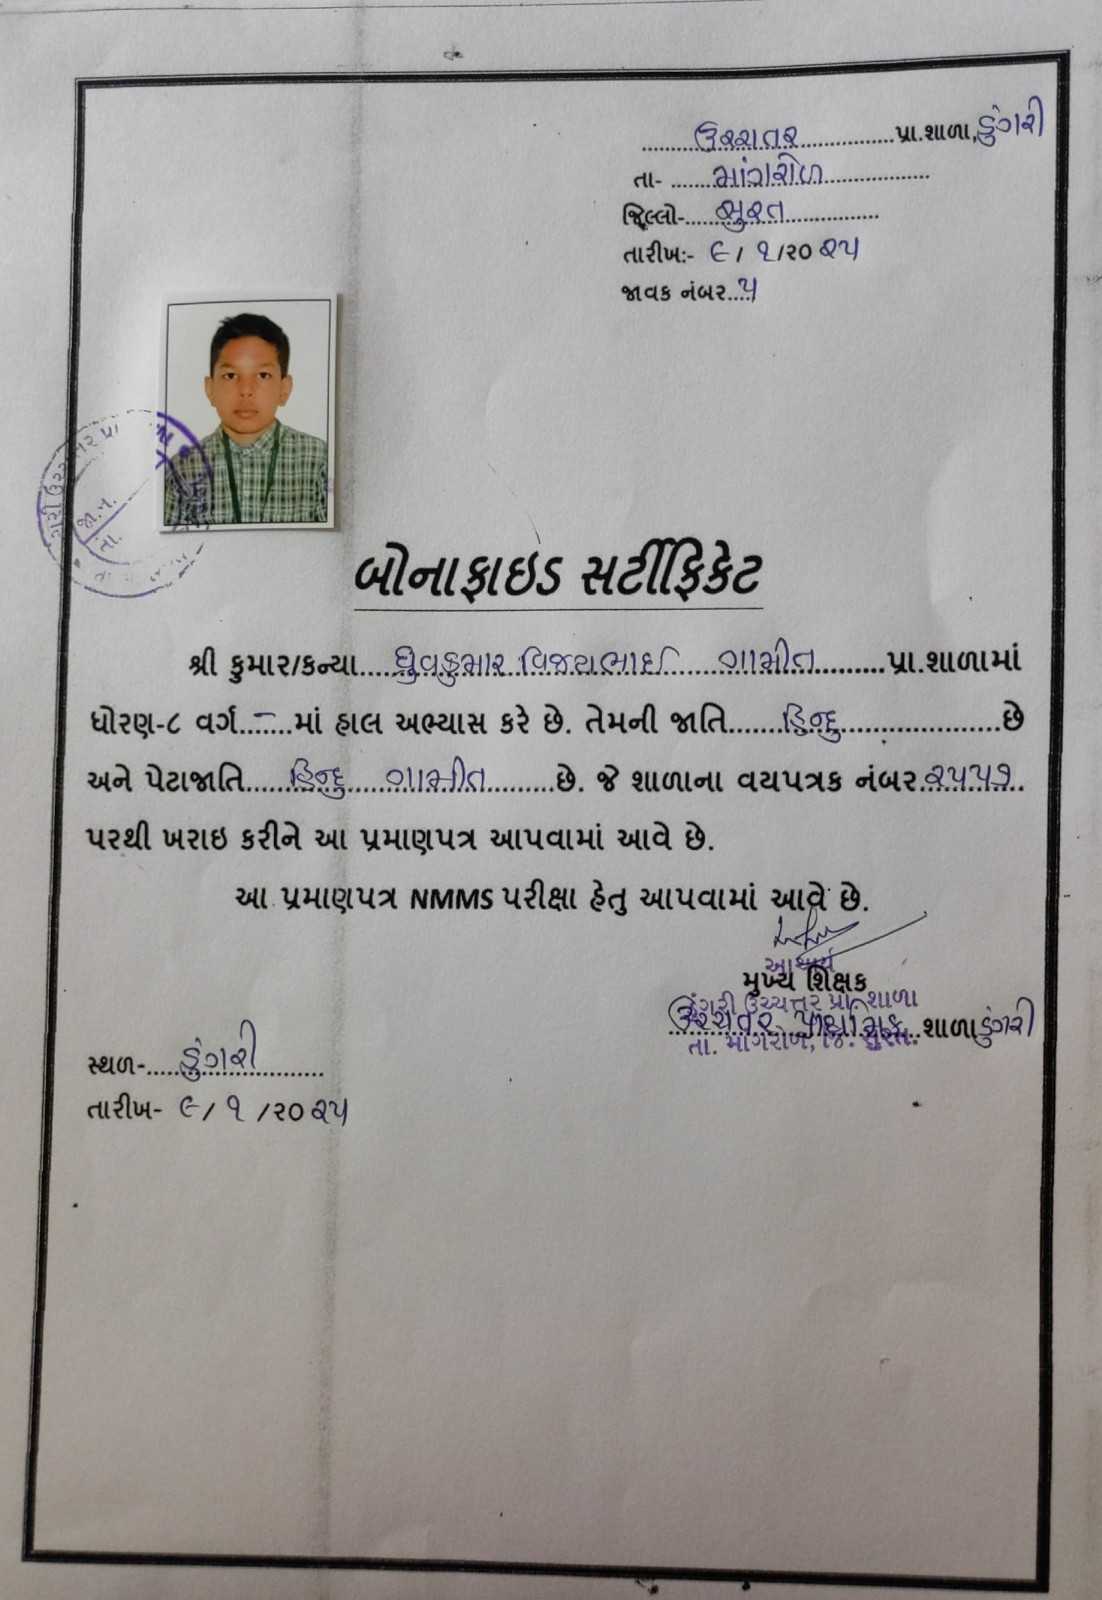 ઉચ્ચતર પ્રા.શાળા, ડુંગરી
તા- માંગરોળ
જિલ્લો- સુરત
તારીખ:- ૯/ ૧/૨૦ ૨૫
જાવક નંબર.. ૫
બોનાફાઇડ સર્ટીફિકેટ
શ્રી કુમાર/કન્યા.... ધ્રુવકુમાર વિજયભાઈ ગામીત .........પ્રા.શાળામાં
ધોરણ-૮ વર્ગ..–....માં હાલ અભ્યાસ કરે છે. તેમની જાતિ...... હિન્દુ ......છે
અને પેટાજાતિ.... હિન્દુ ગામીત .........છે. જે શાળાના વયપત્રક નંબર. ૨૫૫૭
પરથી ખરાઇ કરીને આ પ્રમાણપત્ર આપવામાં આવે છે.
આ પ્રમાણપત્ર NMMS પરીક્ષા હેતુ આપવામાં આવે છે.
આચાર્ય
મુખ્ય શિક્ષક
ડુંગરી ઉચ્ચત્તર પ્રા. શાળા
ઉચ્ચતર પ્રાથમિક શાળા ડુંગરી
તા. માંગરોળ, જિ. સુરત.
સ્થળ-.... ડુંગરી
તારીખ- ૯/ ૧ /૨૦ ૨૫